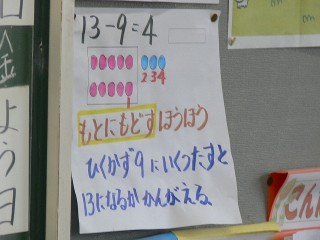 13-9=4
1
234
もとにもどすほうほう
ひくかず9にいくつたすと
13になるかかんがえる。
金
よう日
こん